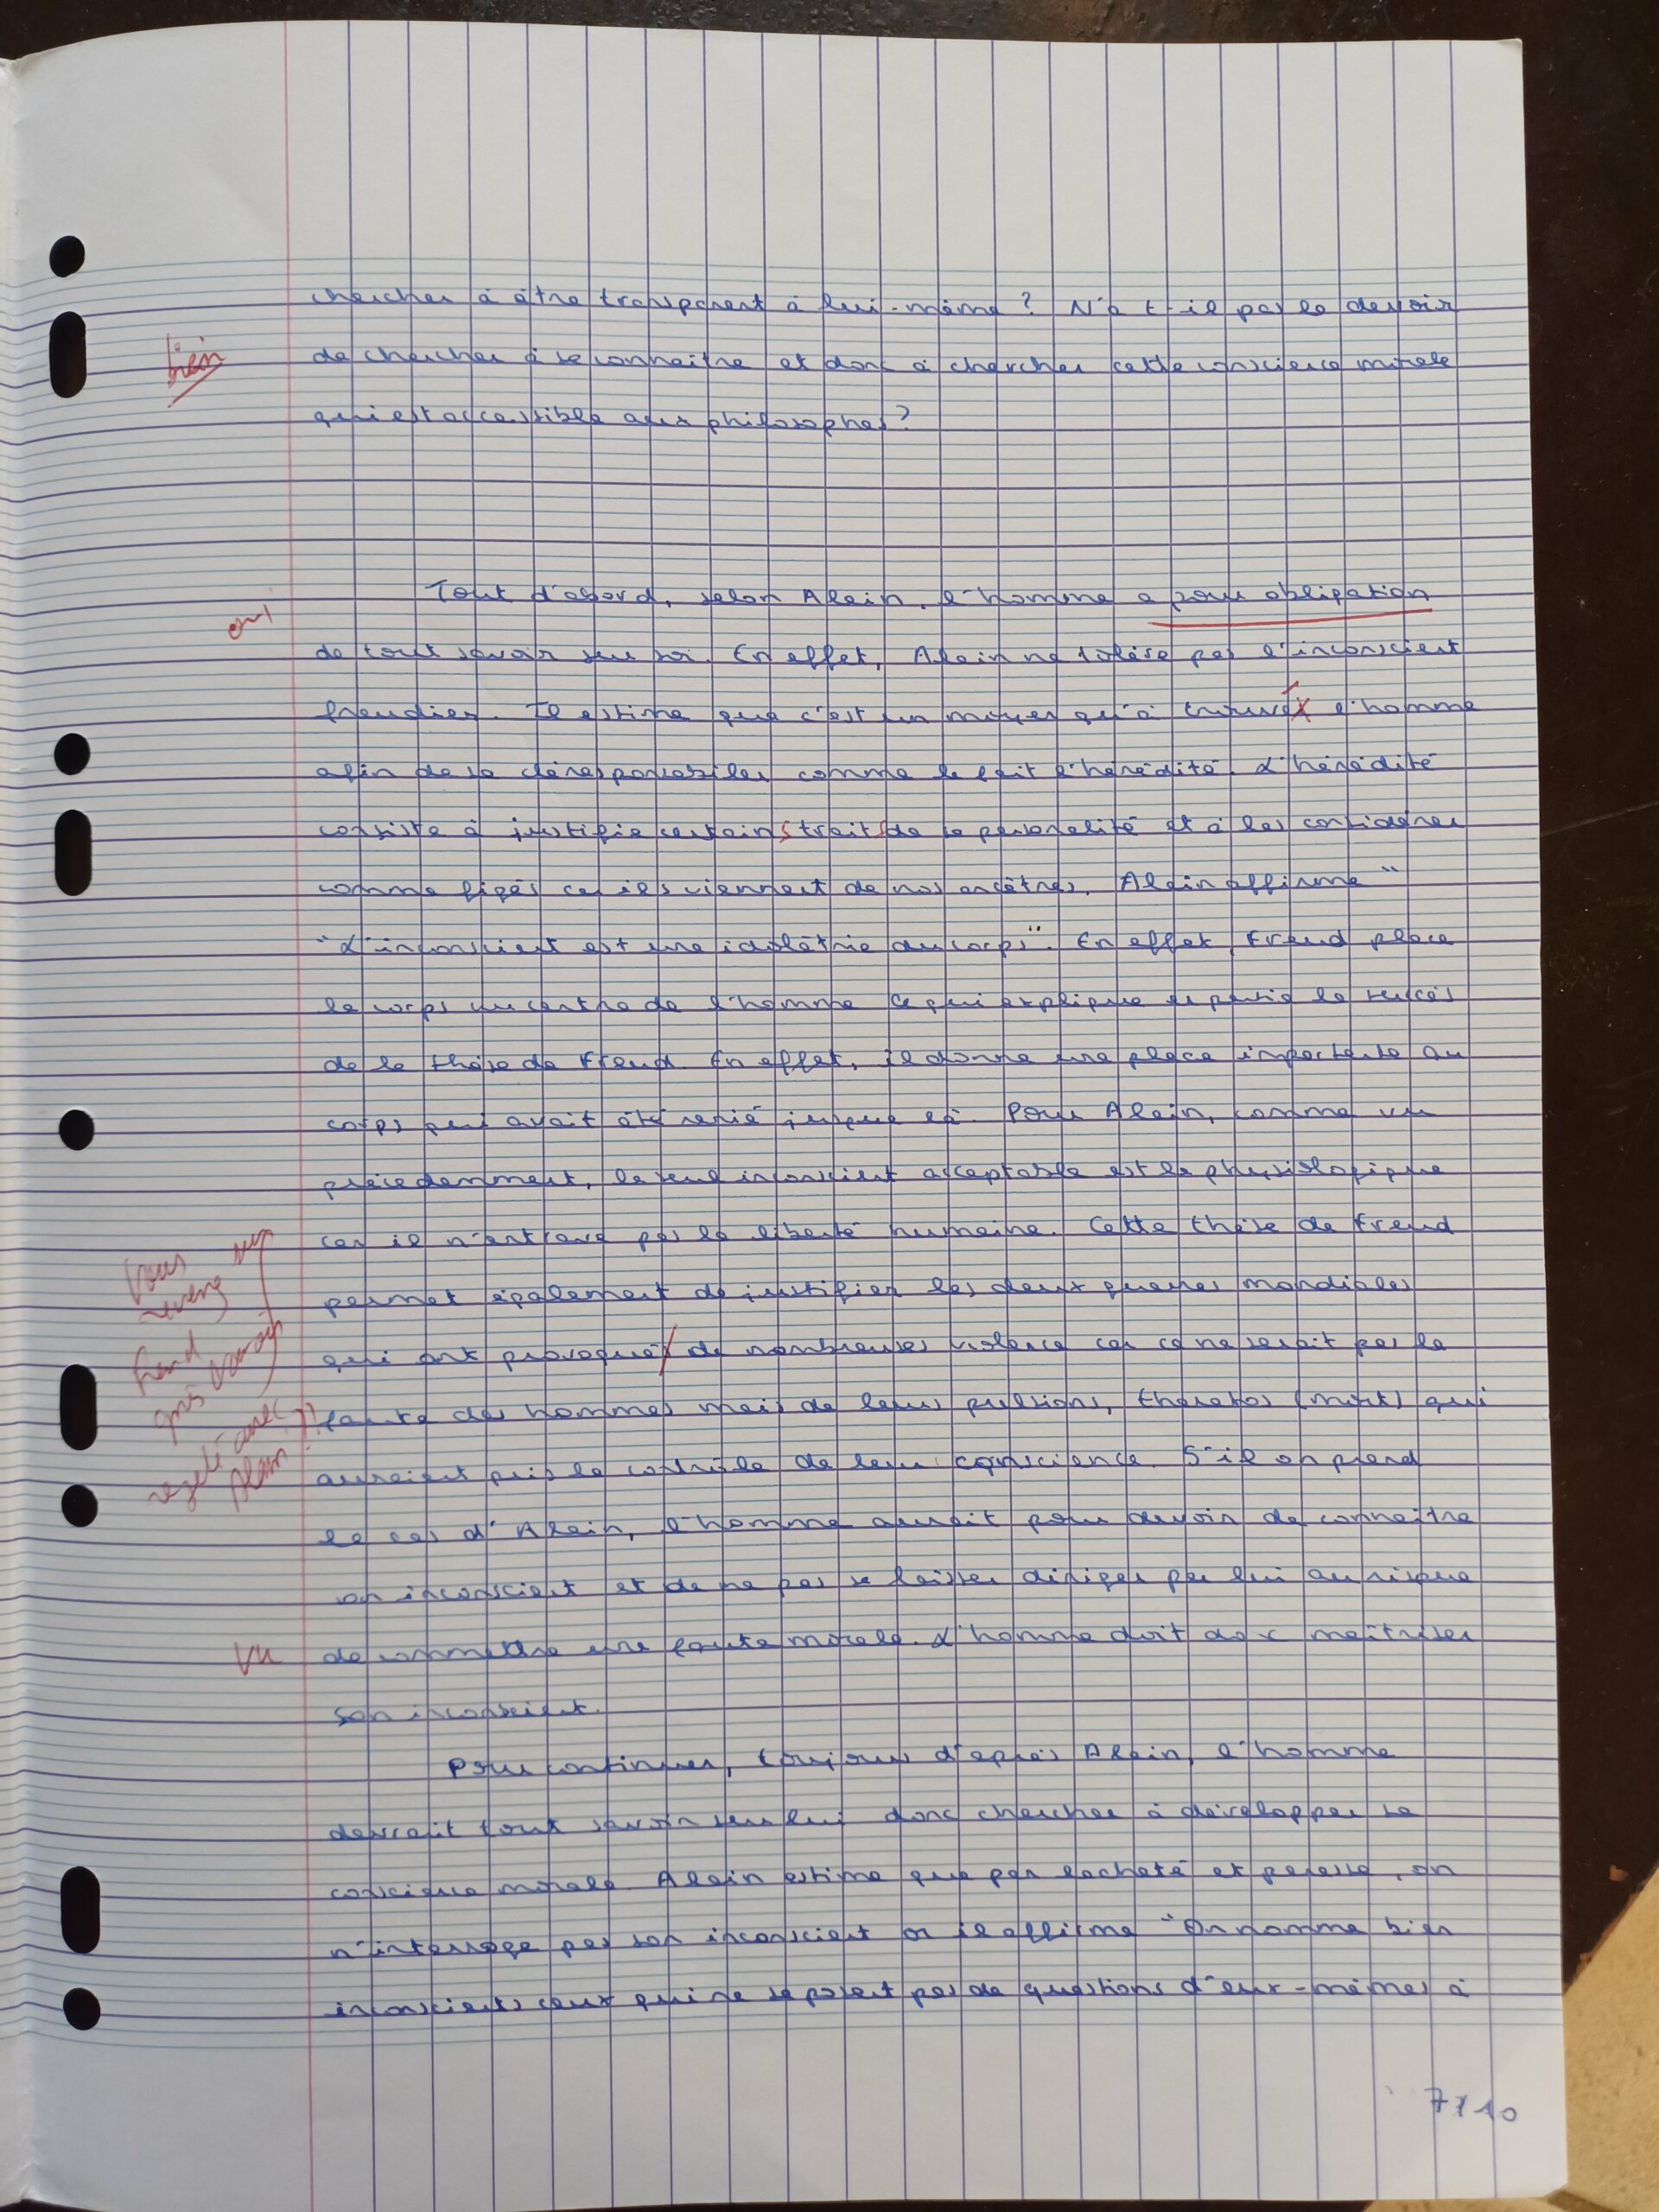 chercher à être transparent à lui-même ? N'a t-il pas le devoir
bien
de chercher à se connaître et donc à chercher cette conscience morale
qui est accessible aux philosophes ?
Tout d'abord, selon Alain, l'homme a pour obligation
oui
de tout savoir sur soi. En effet, Alain ne tolère pas l'inconscient
freudien. Il estime que c'est un moyen qu'à trouvé l'homme
afin de se déresponsabiliser comme le fait l'hérédité. L'hérédité
consiste à justifie certains traits de sa personalité et à les considérer
comme figés car ils viennent de nos ancêtres. Alain affirme "
"L'inconscient est une idolâtrie du corps". En effet, Freud place
le corps au centre de l'homme ce qui explique en partie le succès
de la thèse de Freud. En effet, il donne une place importante au
corps qui avait été renié jusque là. Pour Alain, comme vu
précedemment, le seul inconscient acceptable est le physiologique
car il n'entrave pas la liberté humaine. Cette thèse de Freud
permet également de justifier les deux guerres mondiales
qui ont provoqué de nombreuses violence car ce ne serait pas la
faute des hommes mais de leurs pulsions, thanatos (mort) qui
auraient pris le contrôle de leur conscience. S'il on prend
le cas d'Alain, l'homme aurait pour devoir de connaître
son inconscient et de ne pas se laisser diriger par lui au risque
de commettre une faute morale. L'homme doit donc maîtriser
son inconscient.
Vous revenez sur
Freud
après l'avoir
rejeté avec
Alain ?!
Vu
Pour continuer, toujours d'après Alain, l'homme
devrait tout savoir sur lui donc chercher à développer sa
conscience morale. Alain estime que par lacheté et paresse, on
n'interroge pas son inconscient or il affirme "On nomme bien
inconscients ceux qui ne se posent pas de questions d'eux-mêmes à
7/10